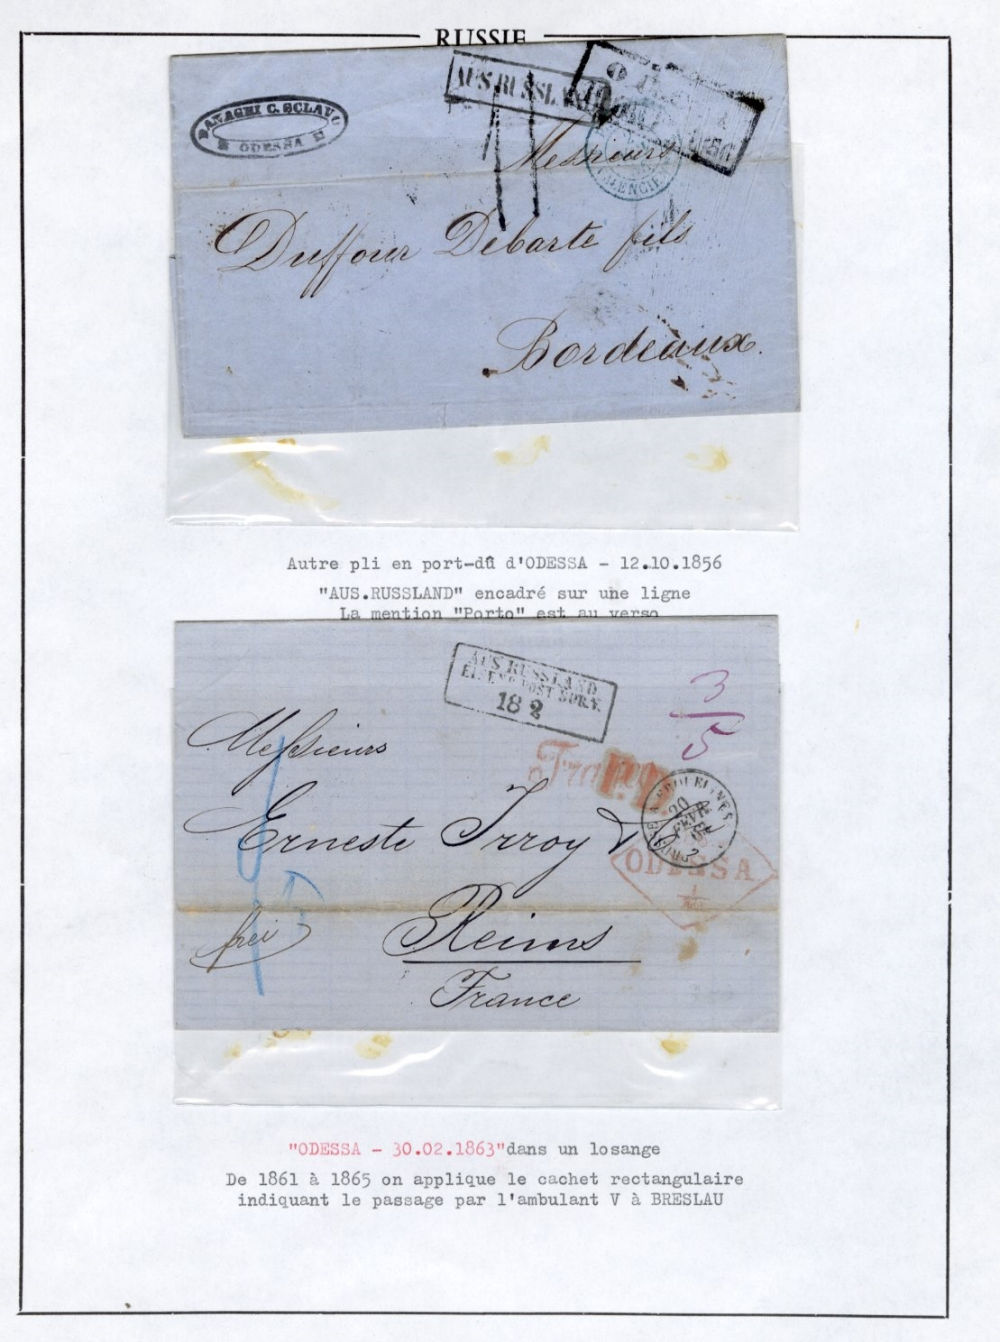 RUSSIE
AUS.RUSSLAND
ODESSA
Messieurs
Duffour Debarte fils
Bordeaux.
Autre pli en port-dû d'ODESSA - 12.10.1856
"AUS.RUSSLAND" encadré sur une ligne
La mention "Porto" est au verso
AUS RUSSLAND
18 2
3/5
Messieurs
Franco
P.D.
20
FEVR.
Erneste Irroy & Co
ODESSA
frei
Reims
France
"ODESSA - 30.02.1863"dans un losange
De 1861 à 1865 on applique le cachet rectangulaire
indiquant le passage par l'ambulant V à BRESLAU